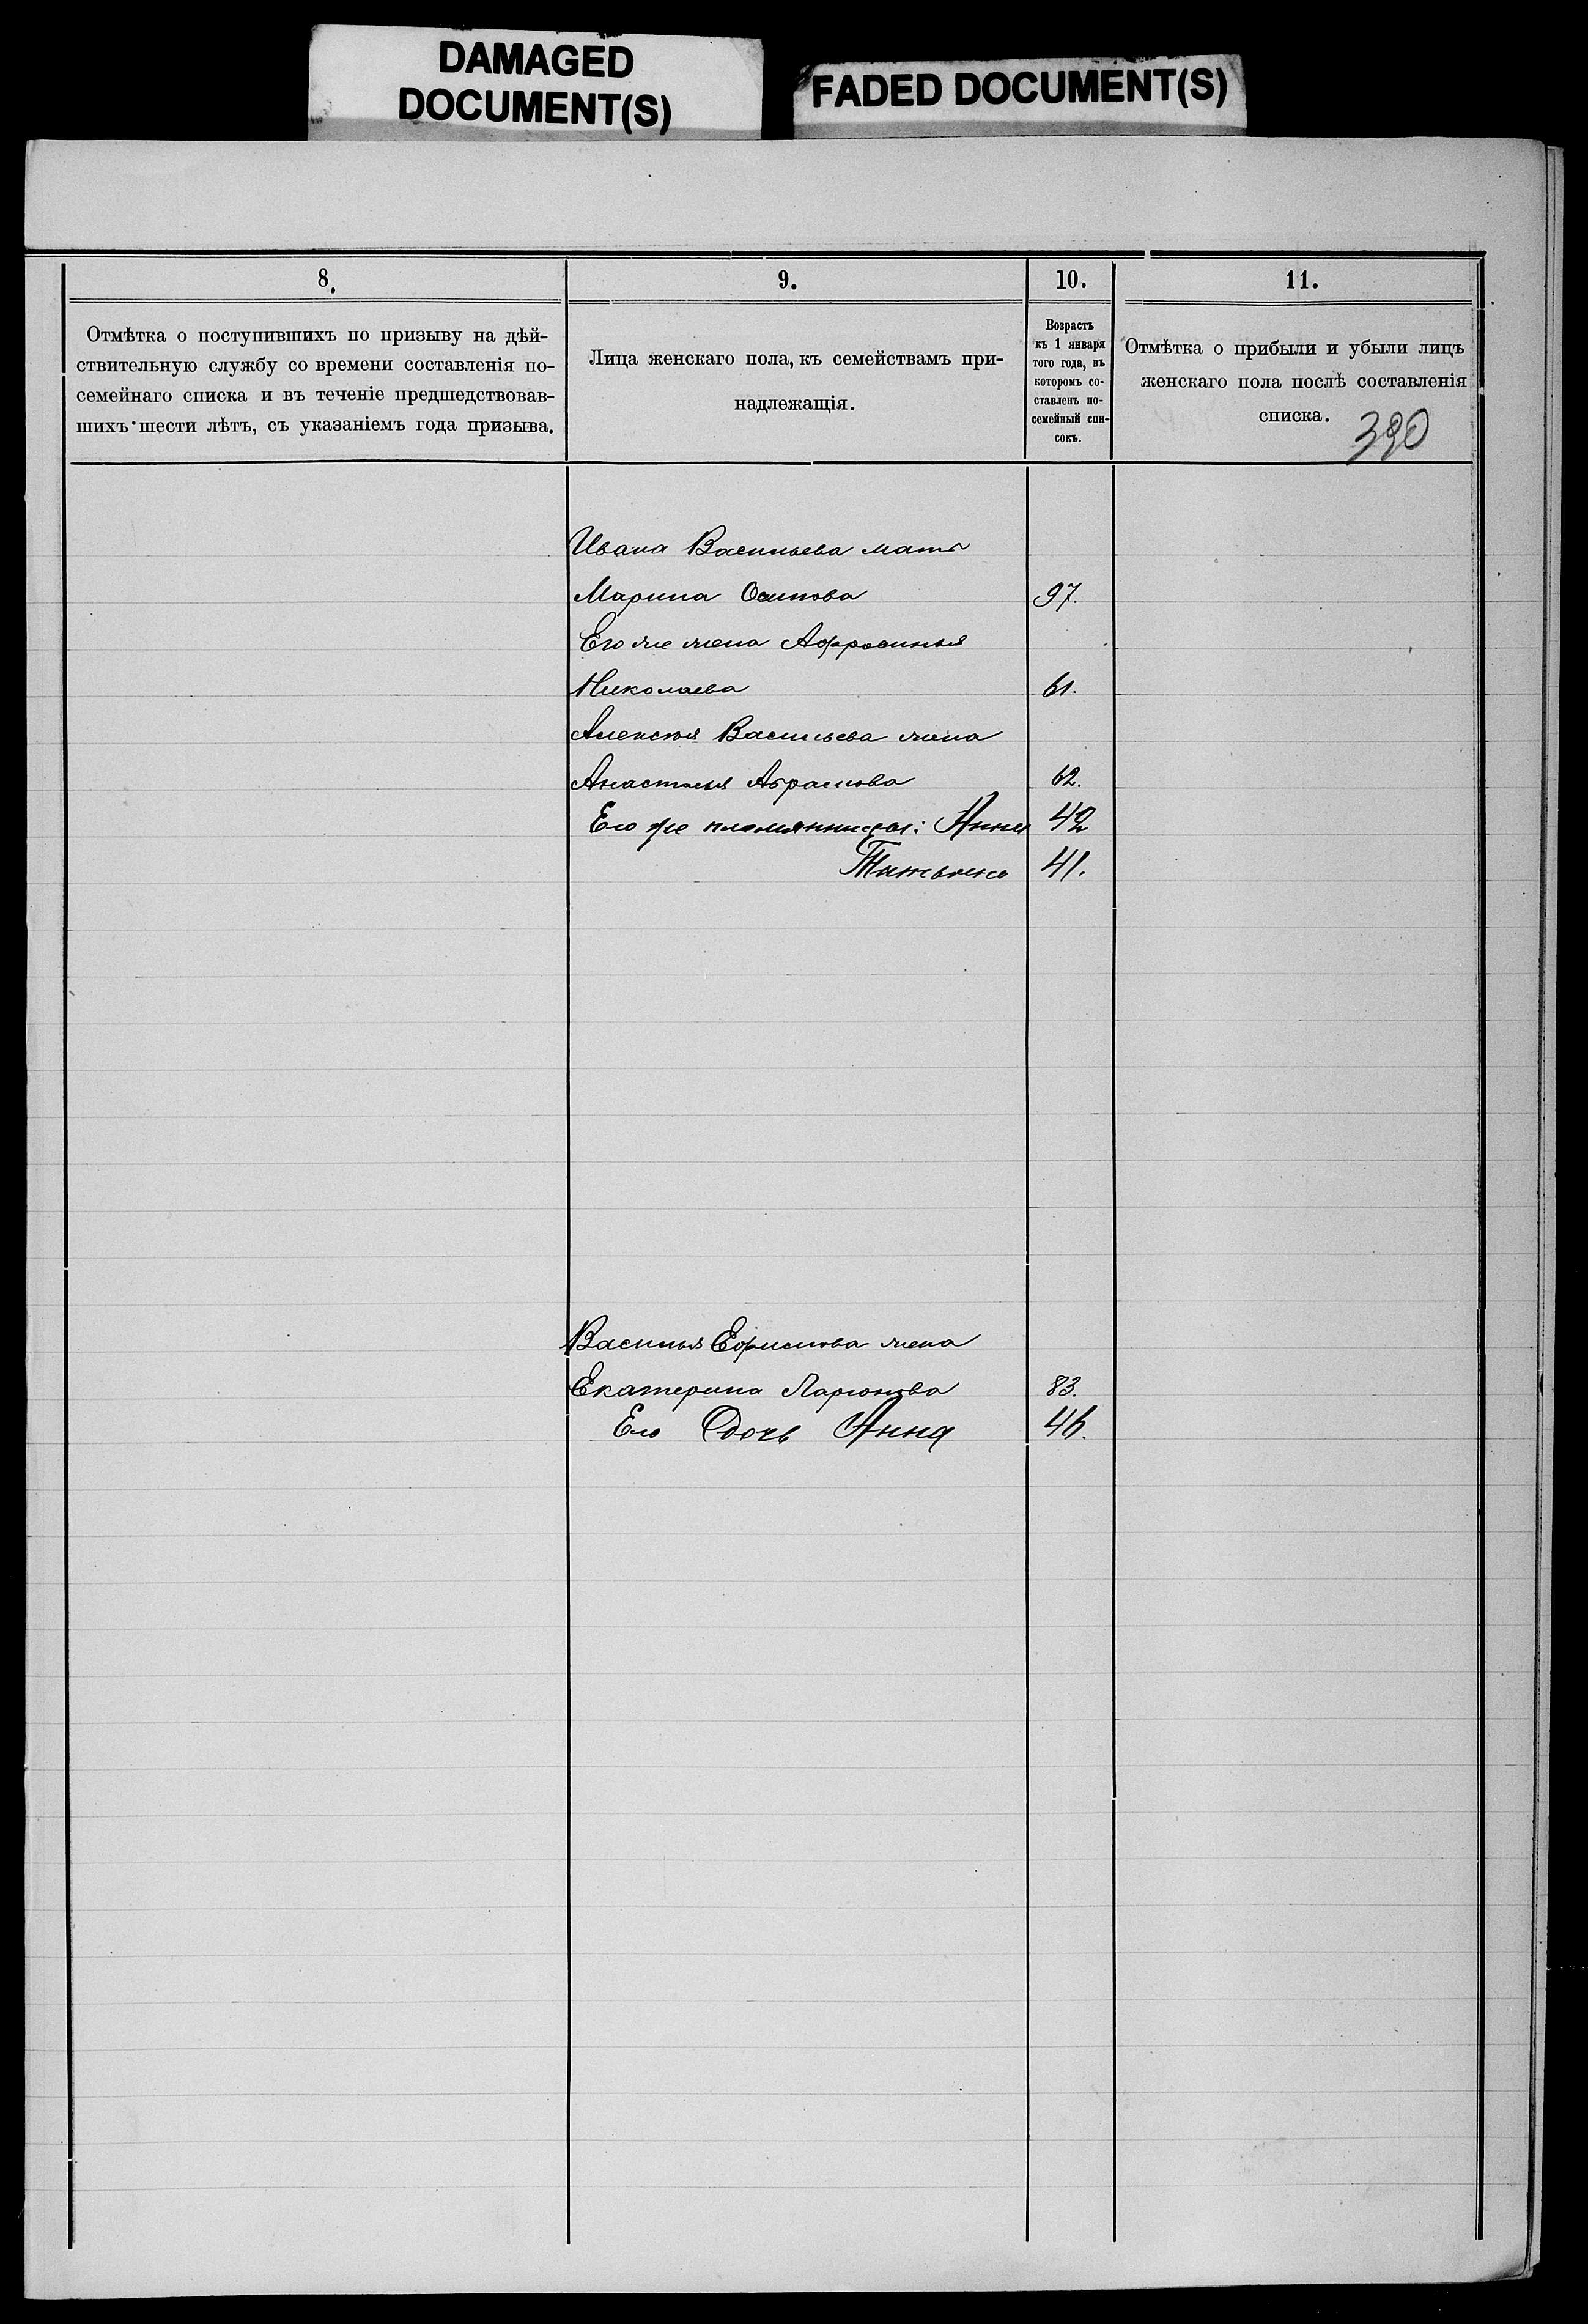 DAMAGED
DOCUMENT(S)
FADED DOCUMENT(S)
8.
9.
10.
11.
Отмѣтка о поступившихъ по призыву на дѣй-
ствительную службу со времени составленія по-
семейнаго списка и въ теченіе предшедствовав-
шихъ шести лѣтъ, съ указаніемъ года призыва.
Лица женскаго пола, къ семействамъ при-
надлежащія.
Возрастъ
къ 1 января
того года, въ
которомъ со-
ставленъ по-
семейный спи-
сокъ.
Отмѣтка о прибыли и убыли лицъ
женскаго пола послѣ составленія
списка.
390
Ивана Васильева мать
Марина Осипова 97.
Его же жена Афросинья
Николаева 61.
Алексѣя Васильева жена
Анастасья Абрамова 62.
Его же племянницы: Анна 42
Татьяна 41.
Василья Ефимова жена
Екатерина Ларіонова 83.
Его дочь Анна 46.